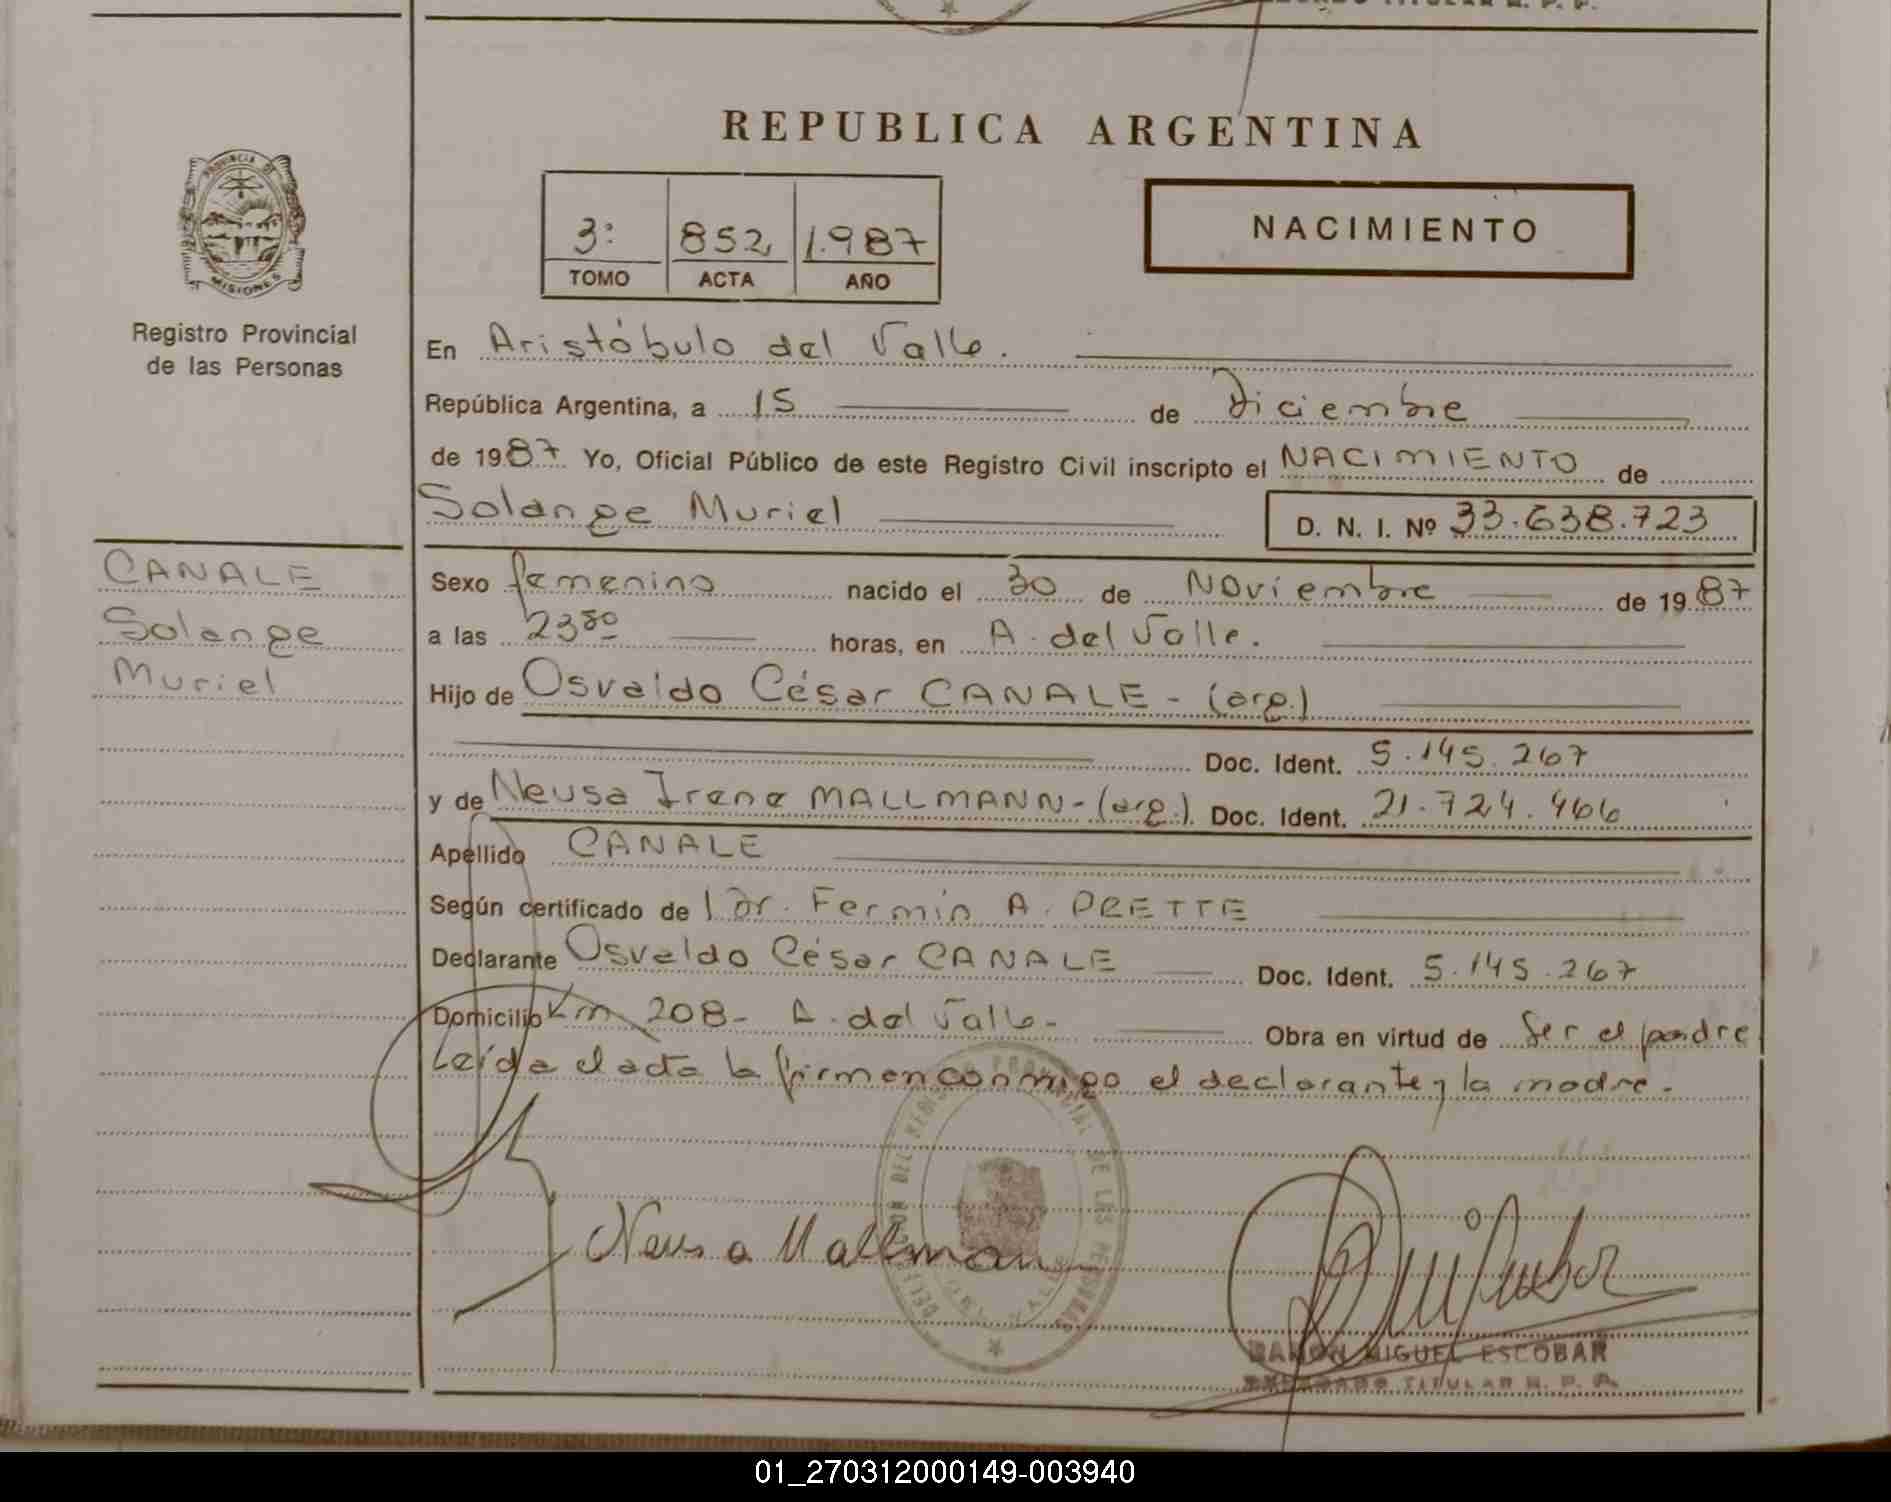 REPUBLICA ARGENTINA
PROVINCIA DE
MISIONES
Registro Provincial
de las Personas
3: 852 1.987
TOMO ACTA AÑO
NACIMIENTO
En Aristóbulo del Valle.
República Argentina, a 15 de Diciembre
de 1987 Yo, Oficial Público de este Registro Civil inscripto el NACIMIENTO de
Solange Muriel D. N. I. Nº 33.638.723
CANALE
Solange
Muriel
Sexo femenino nacido el 30 de Noviembre de 1987
a las horas, en A. del Valle.
Hijo de Osvaldo César CANALE - (arg.)
Doc. Ident. 5.145.267
y de Neusa Irene MALLMANN - (arg.). Doc. Ident. 21.724.466
Apellido CANALE
Según certificado de Dr. Fermin A. PRETTE
Declarante Osvaldo César CANALE Doc. Ident. 5.145.267
Domicilio Km 208 - A. del Valle - Obra en virtud de Ser el padre
Leída el acta la firman conmigo el declarante y la madre.
Neusa Mallmann
RAMON MIGUEL ESCOBAR
TITULAR R. P. P.
01_270312000149-003940